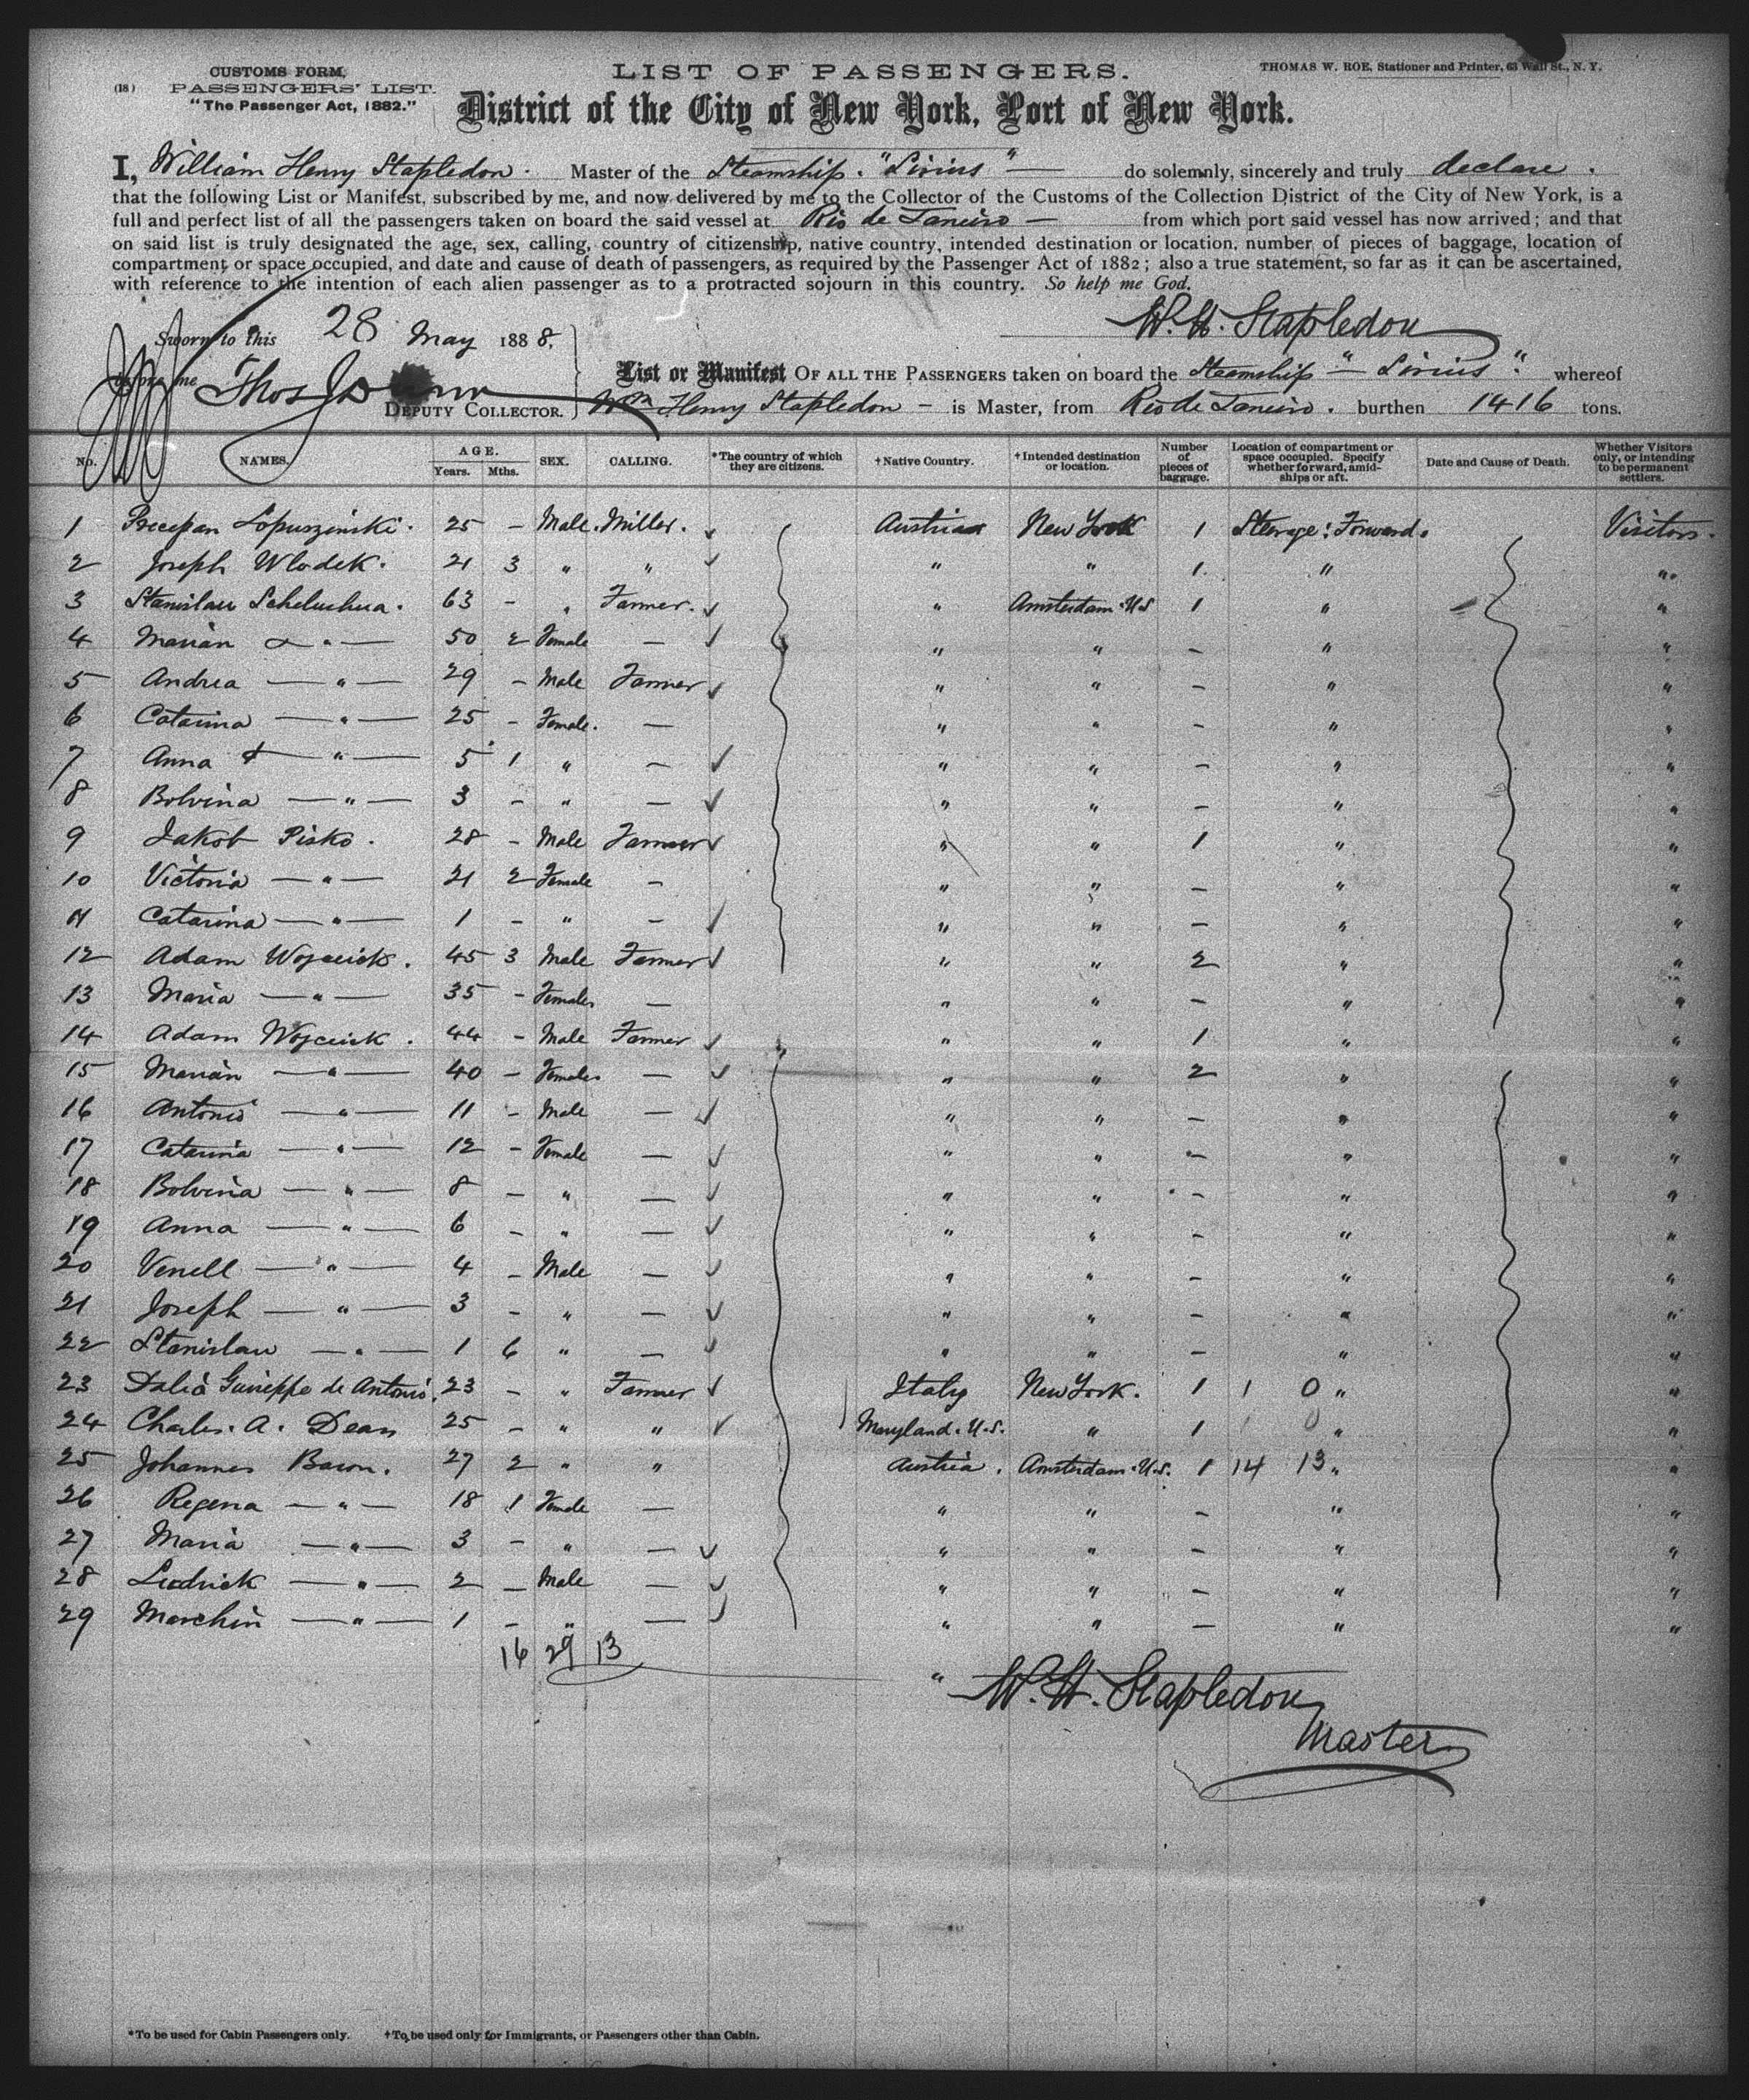 CUSTOMS FORM,
(18) PASSENGERS' LIST.
"The Passenger Act, 1882."
LIST OF PASSENGERS.
THOMAS W. ROE, Stationer and Printer, 63 Wall St., N. Y.
District of the City of New York, Port of New York.
I, William Henry Stapledon. Master of the Steamship. "Sirius" — do solemnly, sincerely and truly declare.
that the following List or Manifest, subscribed by me, and now delivered by me to the Collector of the Customs of the Collection District of the City of New York, is a
full and perfect list of all the passengers taken on board the said vessel at Rio de Janeiro — from which port said vessel has now arrived; and that
on said list is truly designated the age, sex, calling, country of citizenship, native country, intended destination or location, number of pieces of baggage, location of
compartment or space occupied, and date and cause of death of passengers, as required by the Passenger Act of 1882; also a true statement, so far as it can be ascertained,
with reference to the intention of each alien passenger as to a protracted sojourn in this country. So help me God.
W. H. Stapledon
Sworn to this 28 May 1888.
before me Thos
DEPUTY COLLECTOR.
List or Manifest OF ALL THE PASSENGERS taken on board the Steamship — "Sirius". whereof
Wm Henry Stapledon — is Master, from Rio de Janeiro. burthen 1416 tons.
No. NAMES. AGE. Years. Mths. SEX. CALLING. *The country of which they are citizens. †Native Country. †Intended destination or location. Number of pieces of baggage. Location of compartment or space occupied. Specify whether forward, amidships or aft. Date and Cause of Death. Whether Visitors only, or intending to be permanent settlers.
1 Lopuszinski. 25 — Male. Miller. Austria New York 1 Steerage: Forward. Visitors.
2 Joseph Wlodek. 21 3 " " " " 1. " "
3 Stanislau 63 — " Farmer. " Amsterdam. U.S 1 " "
4 Marian — " — 50 2 Female — " " — " "
5 Andrea — " — 29 — Male Farmer " " — " "
6 Catarina — " — 25 — Female. — " " — " "
7 Anna — " — 5 1 " — " " — " "
8 Bolvina — " — 3 — " — " " — " "
9 Jakob Pisko. 28 — Male Farmer " " 1 " "
10 Victoria — " — 21 2 Female — " " — " "
11 Catarina — " — 1 — " — " " — " "
12 Adam Wojceick. 45 3 Male Farmer " " 2 " "
13 Maria — " — 35 — Females — " " — " "
14 Adam Wojceick. 44 — Male Farmer " " 1 " "
15 Marian — " — 40 — Females — " " 2 " "
16 Antonio — " — 11 — Male — " " — " "
17 Catarina — " — 12 — Female — " " — " "
18 Bolvina — " — 8 — " — " " — " "
19 Anna — " — 6 — " — " " — " "
20 Venell — " — 4 — Male — " " — " "
21 Joseph — " — 3 — " — " " — " "
22 Stanislau — " — 1 6 " — " " — " "
23 Guiseppe de Antonio. 23 — " Farmer Italy New York. 1 1 0 " "
24 Charles. A. Dean 25 — " " Maryland. U.S. " 1 1 0 " "
25 Johannes Baron. 27 2 " " Austria. Amsterdam. U.S. 1 14 13 " "
26 Regena — " — 18 1 Female — " " — " "
27 Maria — " — 3 — " — " " — " "
28 Ludrick — " — 2 — Male — " " — " "
29 Marchin — " — 1 — " — " " — " "
16 29 13
" W. H. Stapledon
Master
*To be used for Cabin Passengers only. †To be used only for Immigrants, or Passengers other than Cabin.